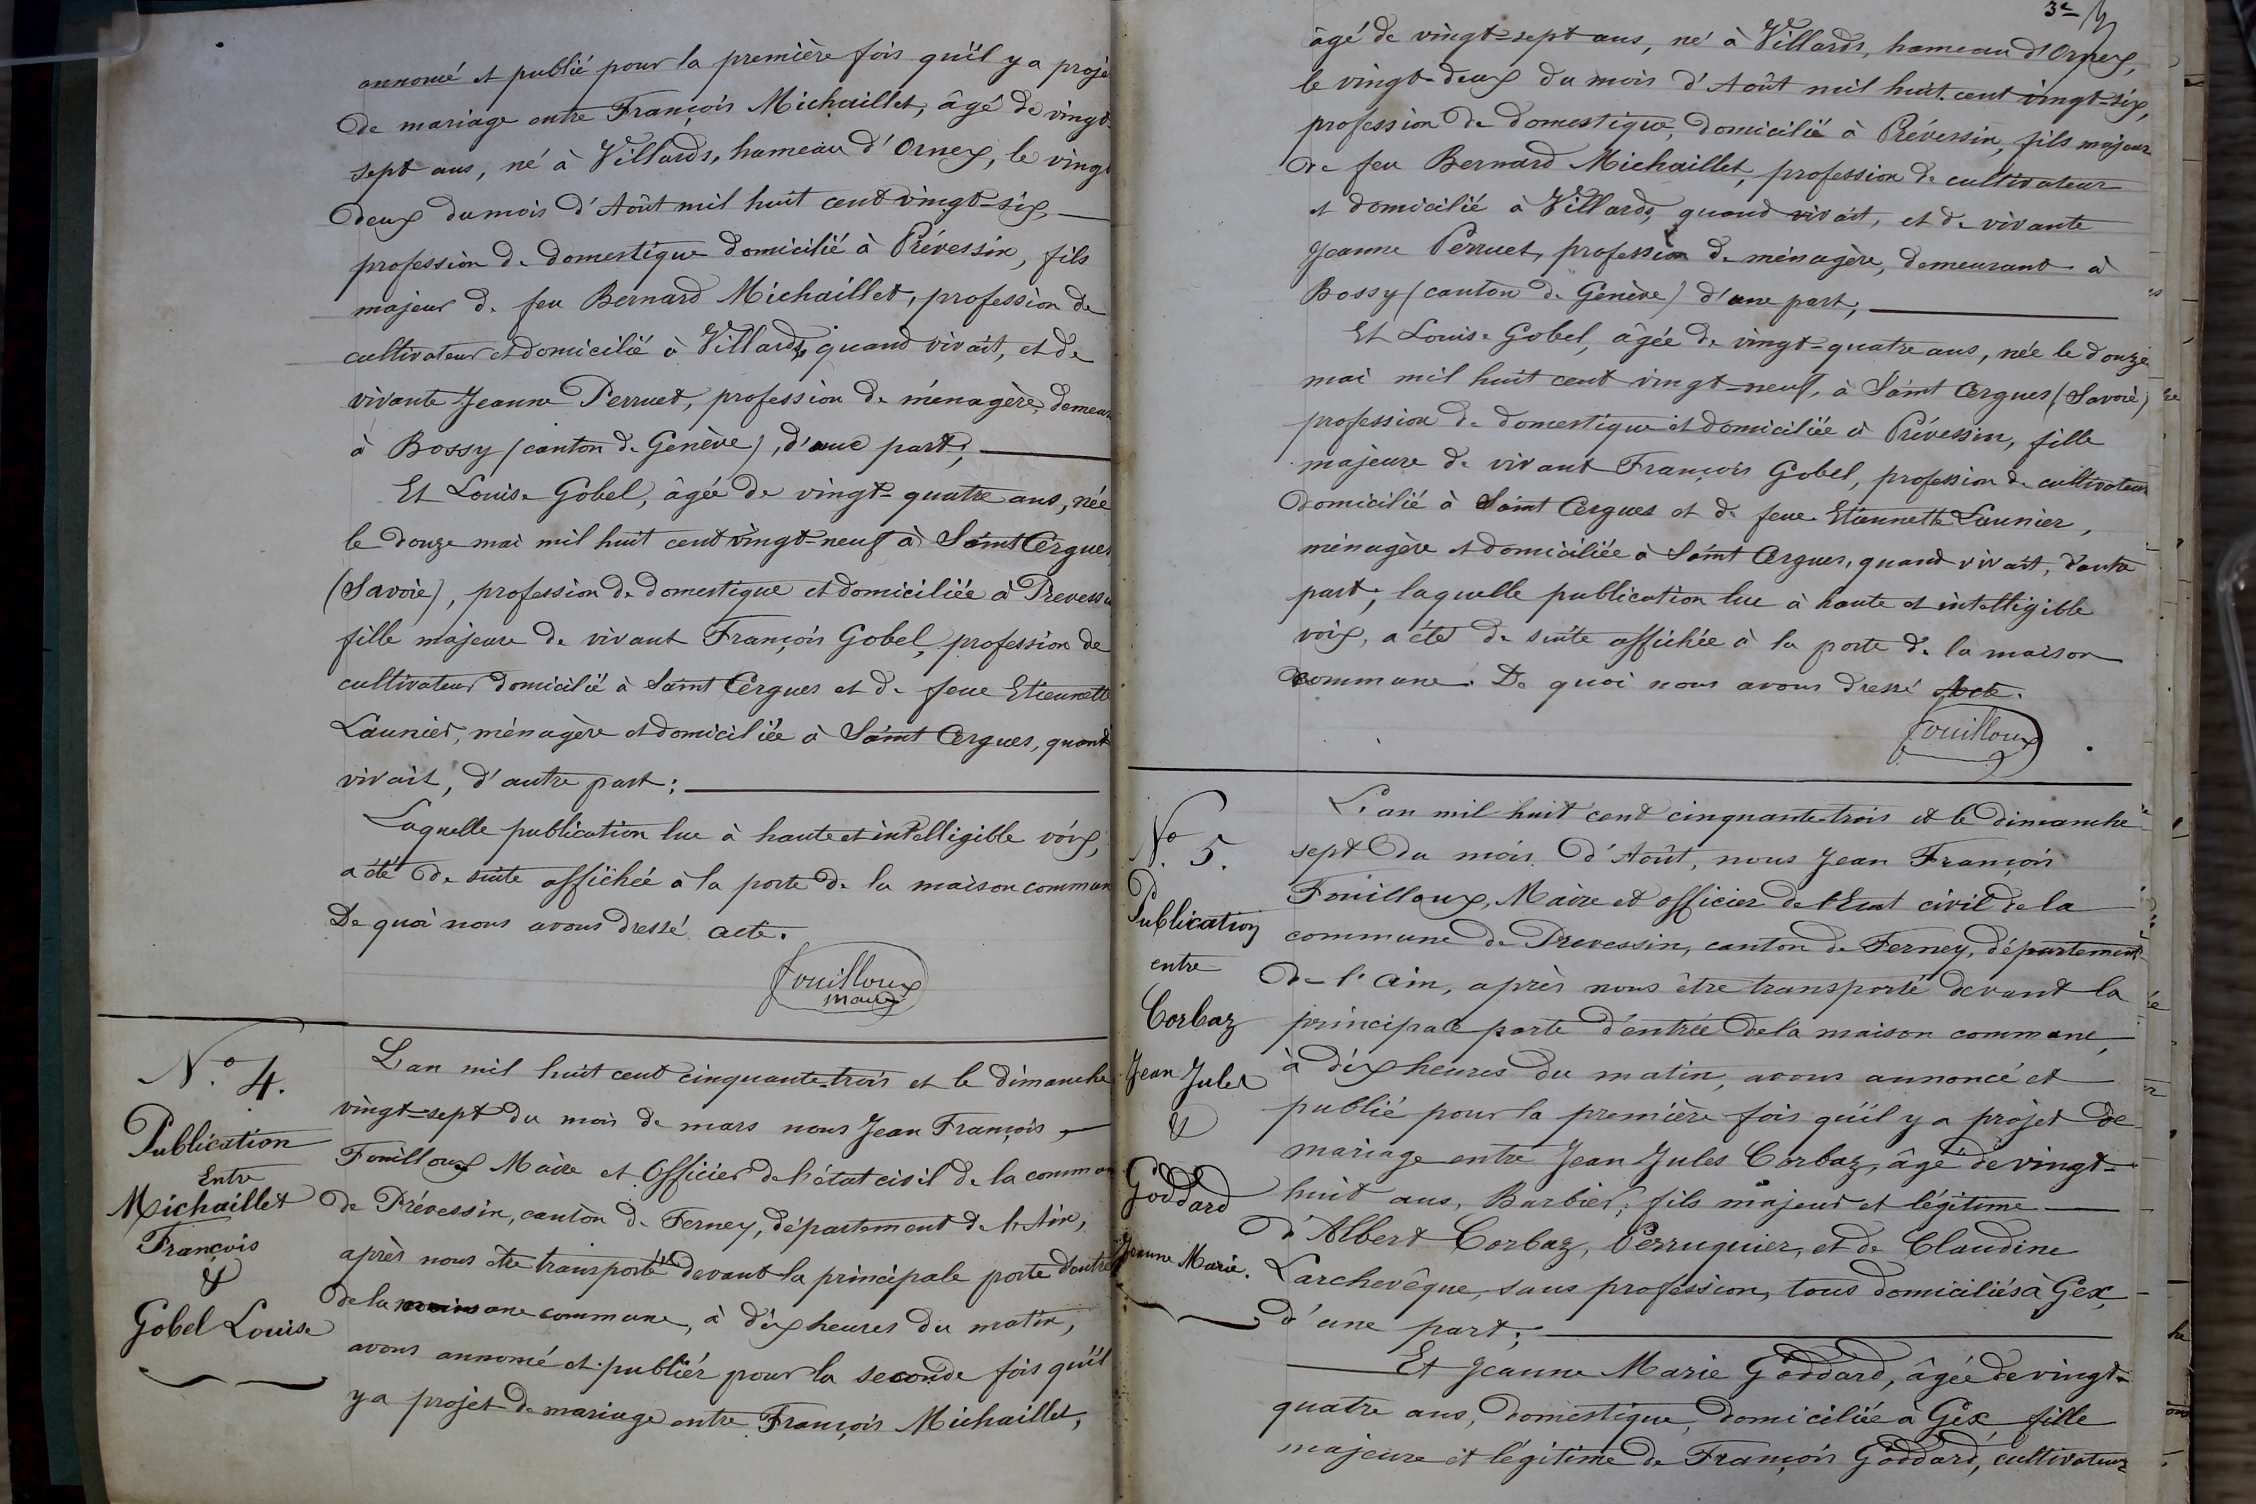 annoncé et publié pour la première fois qu'il y a proje
de mariage entre François Michaillet, âgé de vingt-
sept ans, né à Villards, hameau d'Ornex, le vingt
deux du mois d'Août mil huit cent vingt-six,
profession de domestique domicilié à Prévessin, fils
majeur de feu Bernard Michaillet, profession de
cultivateur et domicilié à Villards, quand vivait, et de
vivante Jeanne Perruet, profession de ménagère, demeur
à Bossy (canton de Genève), d'une part;
Et Louise Gobel, âgée de vingt-quatre ans, née
le douze mai mil huit cent vingt-neuf à Saint Cergues
(Savoie), profession de domestique et domiciliée à Prevessi
fille majeure de vivant François Gobel, profession de
cultivateur domicilié à Saint Cergues et de feue Etiennette
Launier, ménagère et domiciliée à Saint Cergues, quand
vivait, d'autre part;
Laquelle publication lue à haute et intelligible voix,
a été de suite affichée à la porte de la maison commun
De quoi nous avons dressé acte.
Fouilloux
maire
N.° 4.
Publication
Entre
Michaillet
François
&
Gobel Louise
L'an mil huit cent cinquante-trois et le dimanche
vingt-sept du mois de mars nous Jean François
Fouilloux Maire et Officier de l'état civil de la commun
de Prévessin, canton de Ferney, département de l'Ain,
après nous être transporté devant la principale porte d'entrée
de la commune, à dix heures du matin,
avons annoncé et publiér pour la seconde fois qu'il
y a projet de mariage entre François Michaillet,
3e
âgé de vingt-sept ans, né à Villards, hameau d'Ornex,
le vingt-deux du mois d'Août mil huit cent vingt-six,
profession de domestique, domicilié à Prévessin, fils majeur
de feu Bernard Michaillet, profession de cultivateur
et domicilié à Villards, quand vivait, et de vivante
Jeanne Perruet, profession de ménagère, demeurant à
Bossy (canton de Genève) d'une part,
Et Louise Gobel, âgée de vingt-quatre ans, née le douze
mai mil huit cent vingt-neuf, à Saint Cergues (Savoie)
profession de domestique et domiciliée à Prévessin, fille
majeure de vivant François Gobel, profession de cultivateur
domicilié à Saint Cergues et de feue Etiennette Launier,
ménagère et domiciliée à Saint Cergues, quand vivait, d'autre
part; laquelle publication lue à haute et intelligible
voix, a été de suite affichée à la porte de la maison
commune. De quoi nous avons dressé Acte.
Fouilloux
N.° 5.
Publication
entre
Corbaz
Jean Jules
&
Goddard
Jeanne Marie.
L'an mil huit cent cinquante-trois et le dimanche
sept du mois d'Août, nous Jean François
Fouilloux, Maire et officier de l'Etat civil de la
commune de Prevessin, canton de Ferney, département
de l'Ain, après nous être transporté devant la
principale porte d'entrée de la maison commune,
à dix heures du matin, avons annoncé et
publié pour la première fois qu'il y a projet de
mariage entre Jean Jules Corbaz, âgé de vingt-
huit ans, Barbier, fils majeur et légitime
d'Albert Corbaz, Perruquier, et de Claudine
Larchevêque, sans profession, tous domiciliés à Gex,
d'une part;
Et Jeanne Marie Goddard, âgée de vingt-
quatre ans, domestique, domiciliée à Gex, fille
majeure et légitime de François Goddard, cultivateur